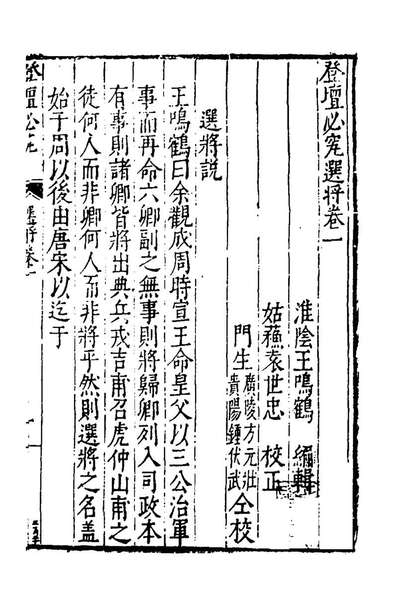 登壇必究選将卷一
淮陰王鳴鶴 編輯
姑蘇袁世忠 校正
門生廣陵方元壯貴陽鍾伏武仝校
選將説
王鳴鶴曰余觀成周時宣王命皇父以三公治軍
事而再命六卿副之無事則將歸卿列入司政本
有事則諸卿皆將出典兵戎吉甫召虎仲山甫之
徒何人而非卿何人而非將乎然則選將之名蓋
始于周以後由唐宋以迄于
登壇必究 選將卷一